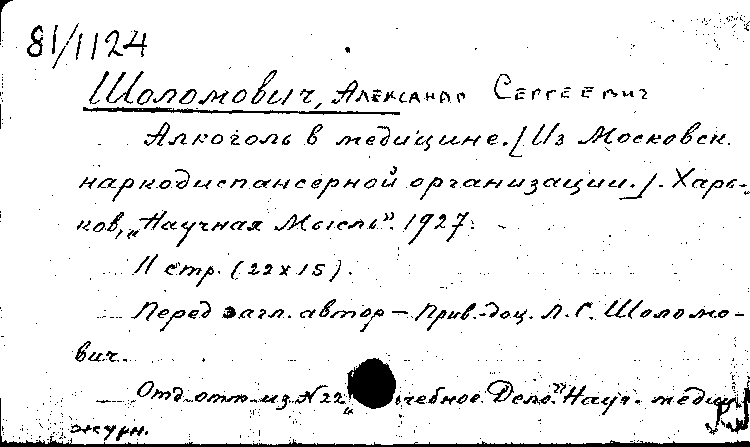 81/1124
Шоломович, Александр Сергеевич
Алкоголь в медицине. [Из Московск.
наркодиспансерной организации.]. Харь-
ков, „Научная Мысль". 1927.
11 стр. (22x15).
Перед загл. автор – прив.-доц. А.С. Шоломо-
вич.
Отд. отт. из N 22 „ чебное Дело." Науч. медиц
журн.